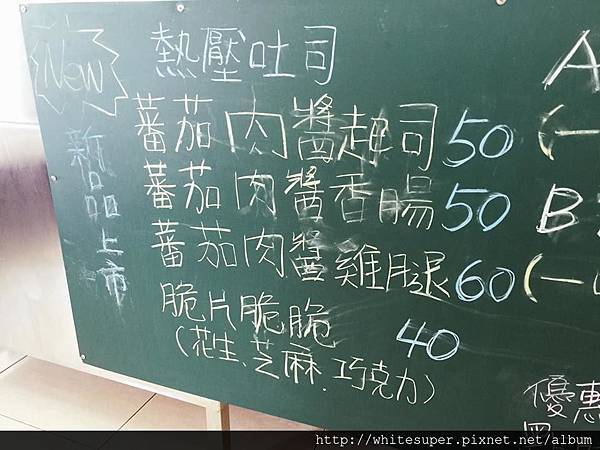 New
新品上市
熱壓吐司
蕃茄肉醬起司 50
蕃茄肉醬香腸 50
蕃茄肉醬雞腿 60
脆片脆脆 40
(花生、芝麻、巧克力)
A
(一
B
(一
優惠
http://whitesuper.pixnet.net/album